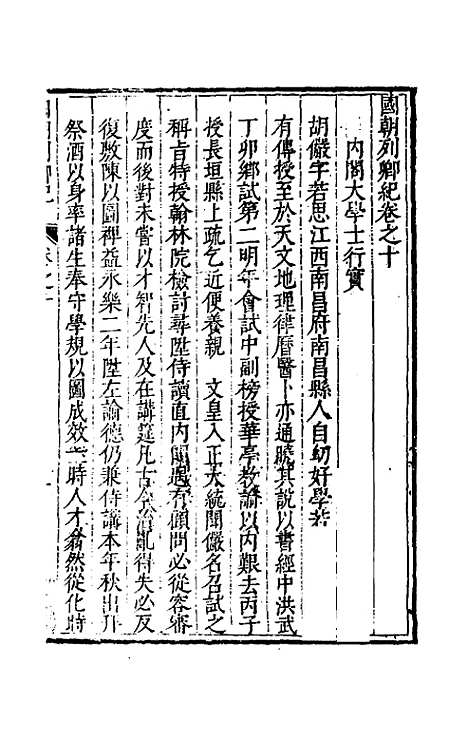 國朝列卿紀卷之十
內閣大學士行實
胡儼字若思江西南昌府南昌縣人自幼好學若
有傳授至於天文地理律曆醫卜亦通曉其說以書經中洪武
丁卯鄉試第二明年會試中副榜授華亭教諭以內艱去丙子
授長垣縣上疏乞近便養親 文皇入正大統聞儼名召試之
稱旨特授翰林院檢討尋陞侍讀直內閣遇有顧問必從容審
度而後對未嘗以才智先人及在講筵凡古今治亂得失必反
復敷陳以圖裨益永樂二年陞左諭德仍兼侍講本年秋出升
祭酒以身率諸生奉守學規以圖成效一時人才翕然從化時
卷之十